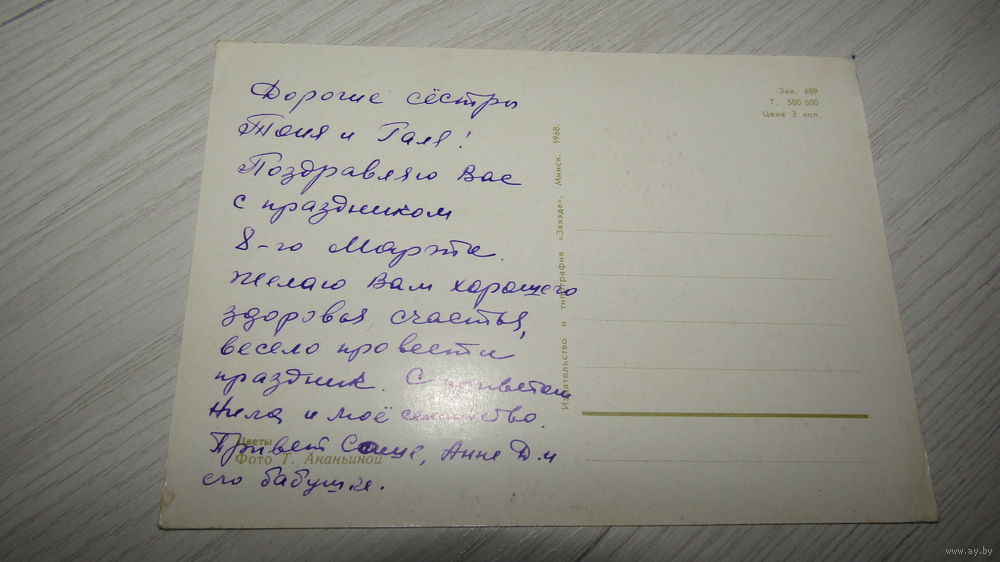 Дорогие сёстры
Тоня и Галя!
Поздравляю Вас
с праздником
8-го Марта.
Желаю Вам хорошего
здоровья, счастья,
весело провести
праздник. С приветом
Нила и моё семейство.
Привет Саше, Анне Д. и
его бабушке.
Цветы
Фото Т. Ананьиной
Издательство и типография «Звязда», Минск. 1968.
Зак. 689
Т. 500 000
Цена 3 коп.
www.ay.by